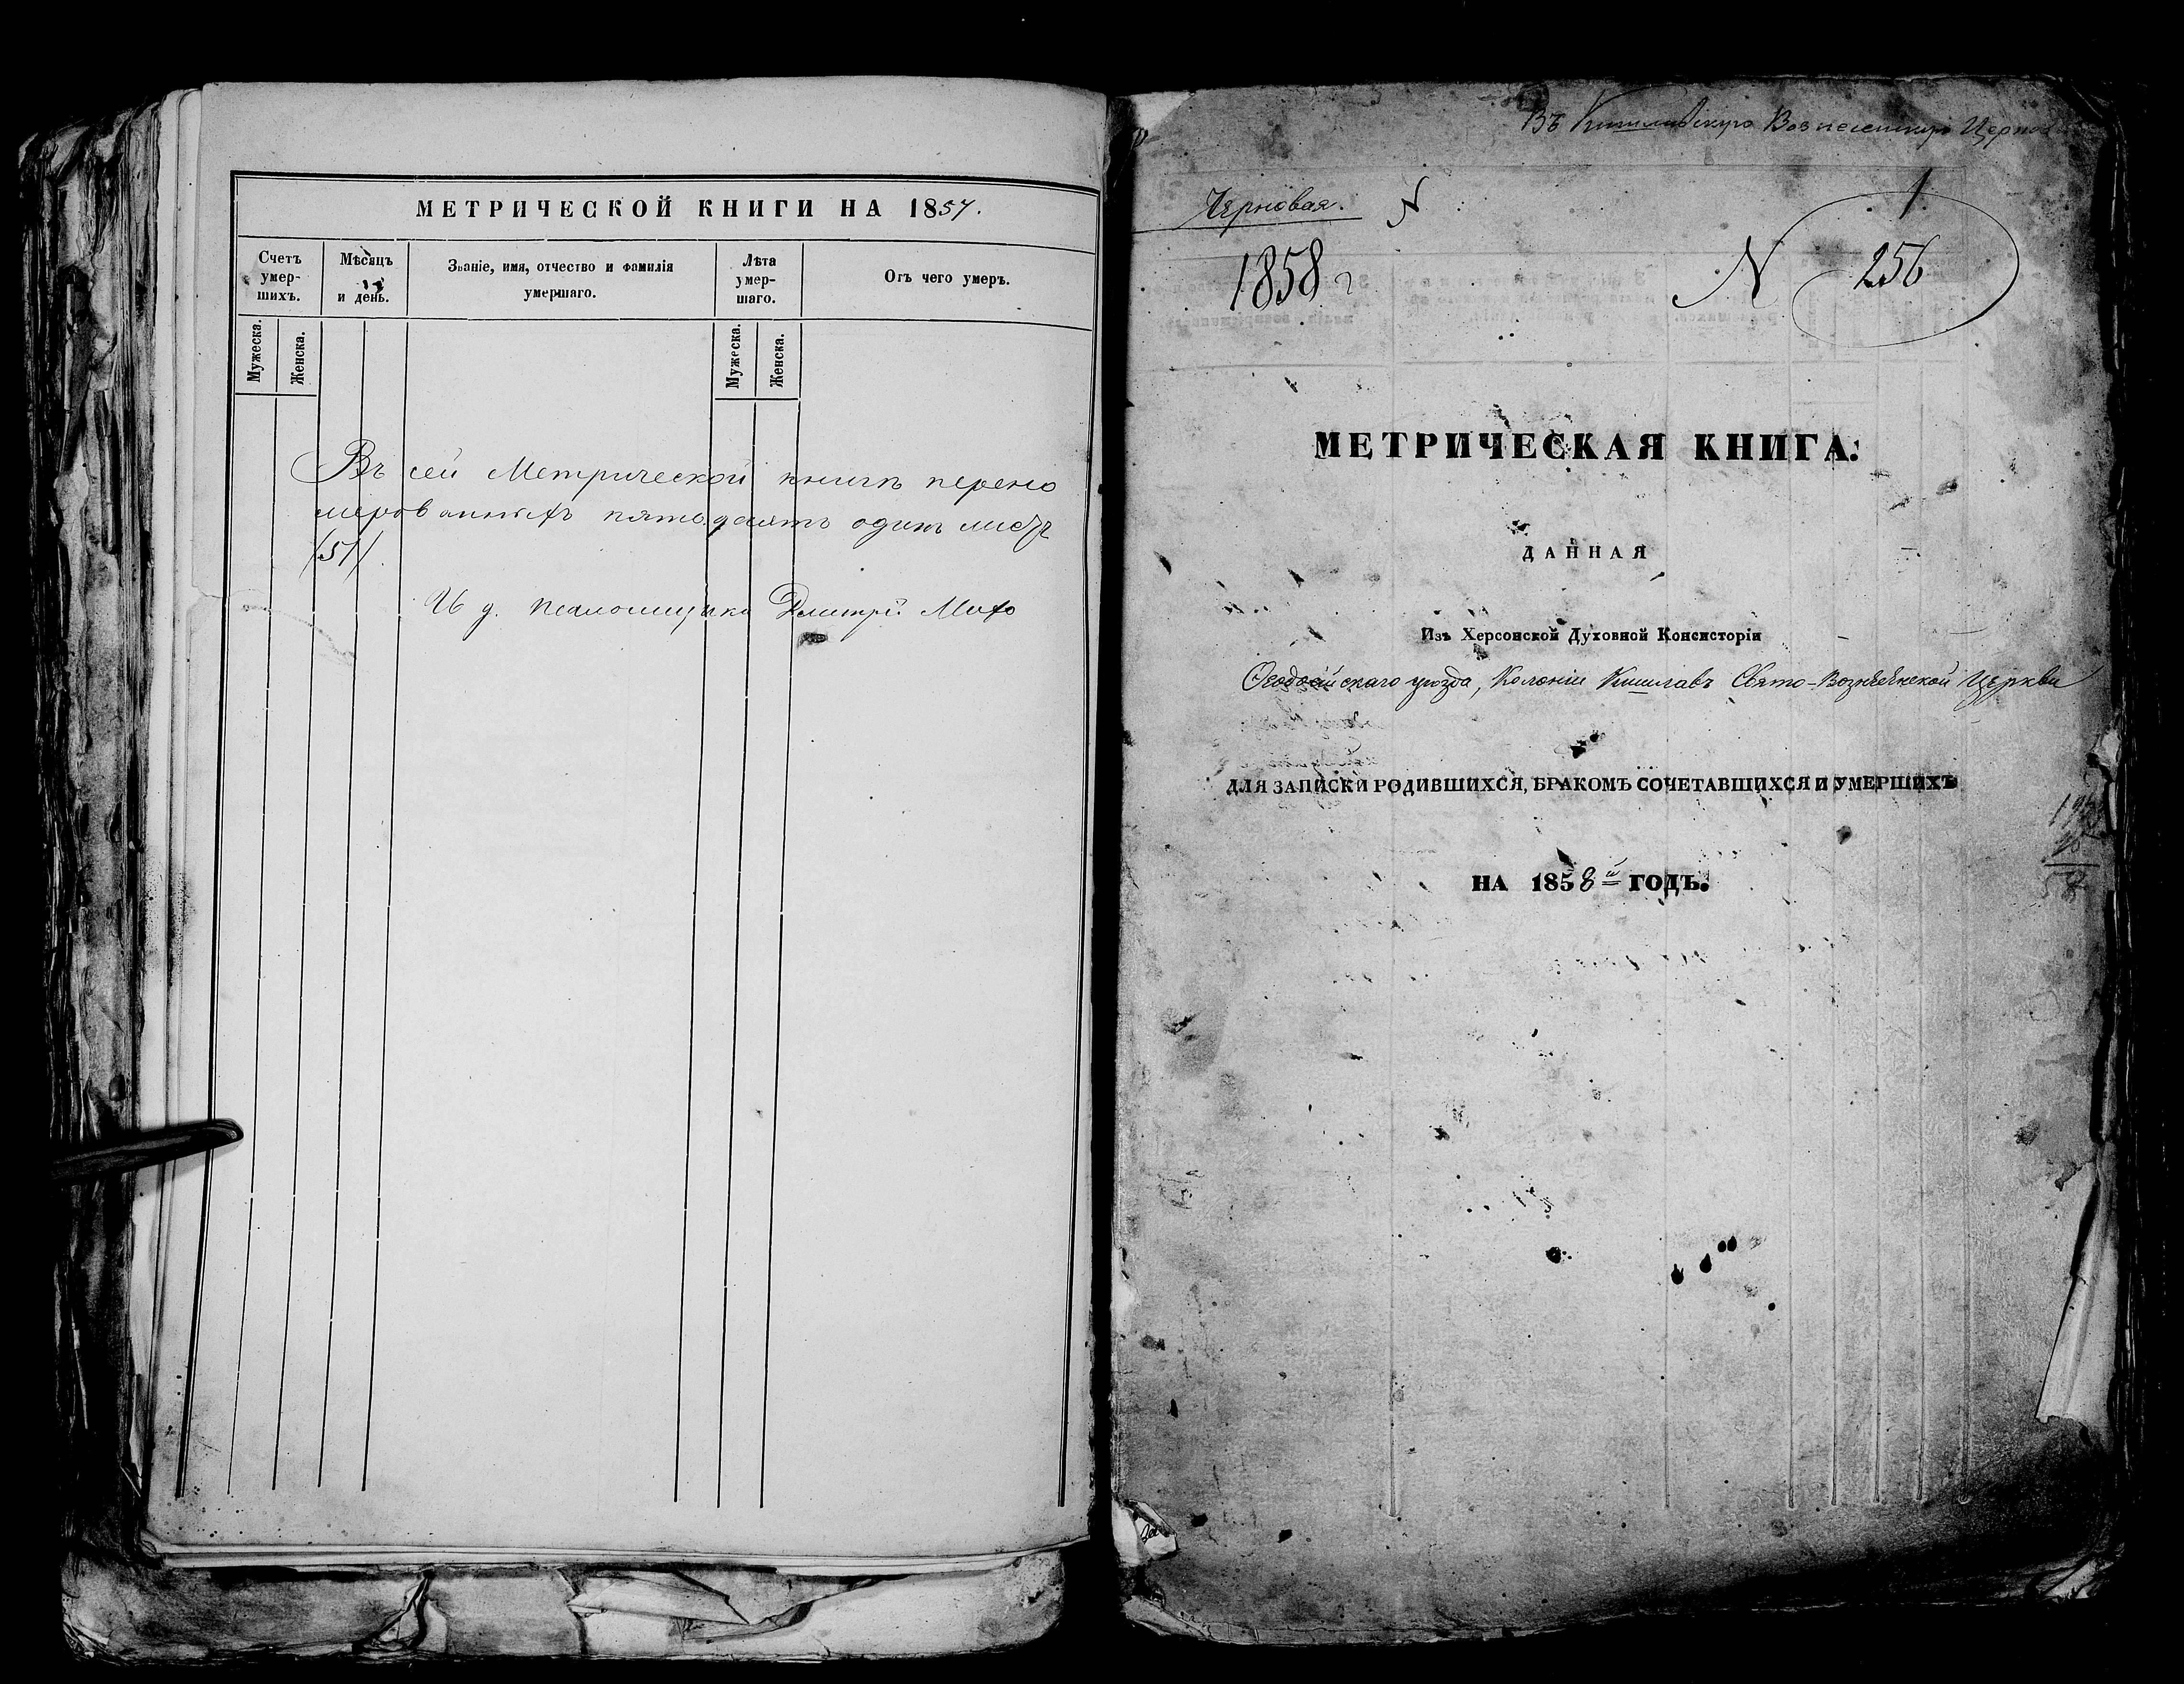 МЕТРИЧЕСКОЙ КНИГИ НА 1857.
Счетъ умер-шихъ.
Мѣсяцъ и день.
Званіе, имя, отчество и фамилія умершаго.
Лѣта умер-шаго.
Отъ чего умеръ.
Мужеска.
Женска.
Мужеска.
Женска.
Въ сей Метрической книгѣ перено
мерованныхъ пятьдесятъ одинъ листъ
/51/.
И д. псаломщика Дмитрій
Въ Вознесенскую Церковь
Черновая.
N
1
1858 г
N 256
МЕТРИЧЕСКАЯ КНИГА.
ДАННАЯ
Изъ Херсонской Духовной Консисторіи
Ѳеодосійскаго уѣзда, Колоніи Кишлавъ Свято-Вознесенской Церкви
ДЛЯ ЗАПИСКИ РОДИВШИХСЯ, БРАКОМЪ СОЧЕТАВШИХСЯ И УМЕРШИХЪ
НА 1858й ГОДЪ.